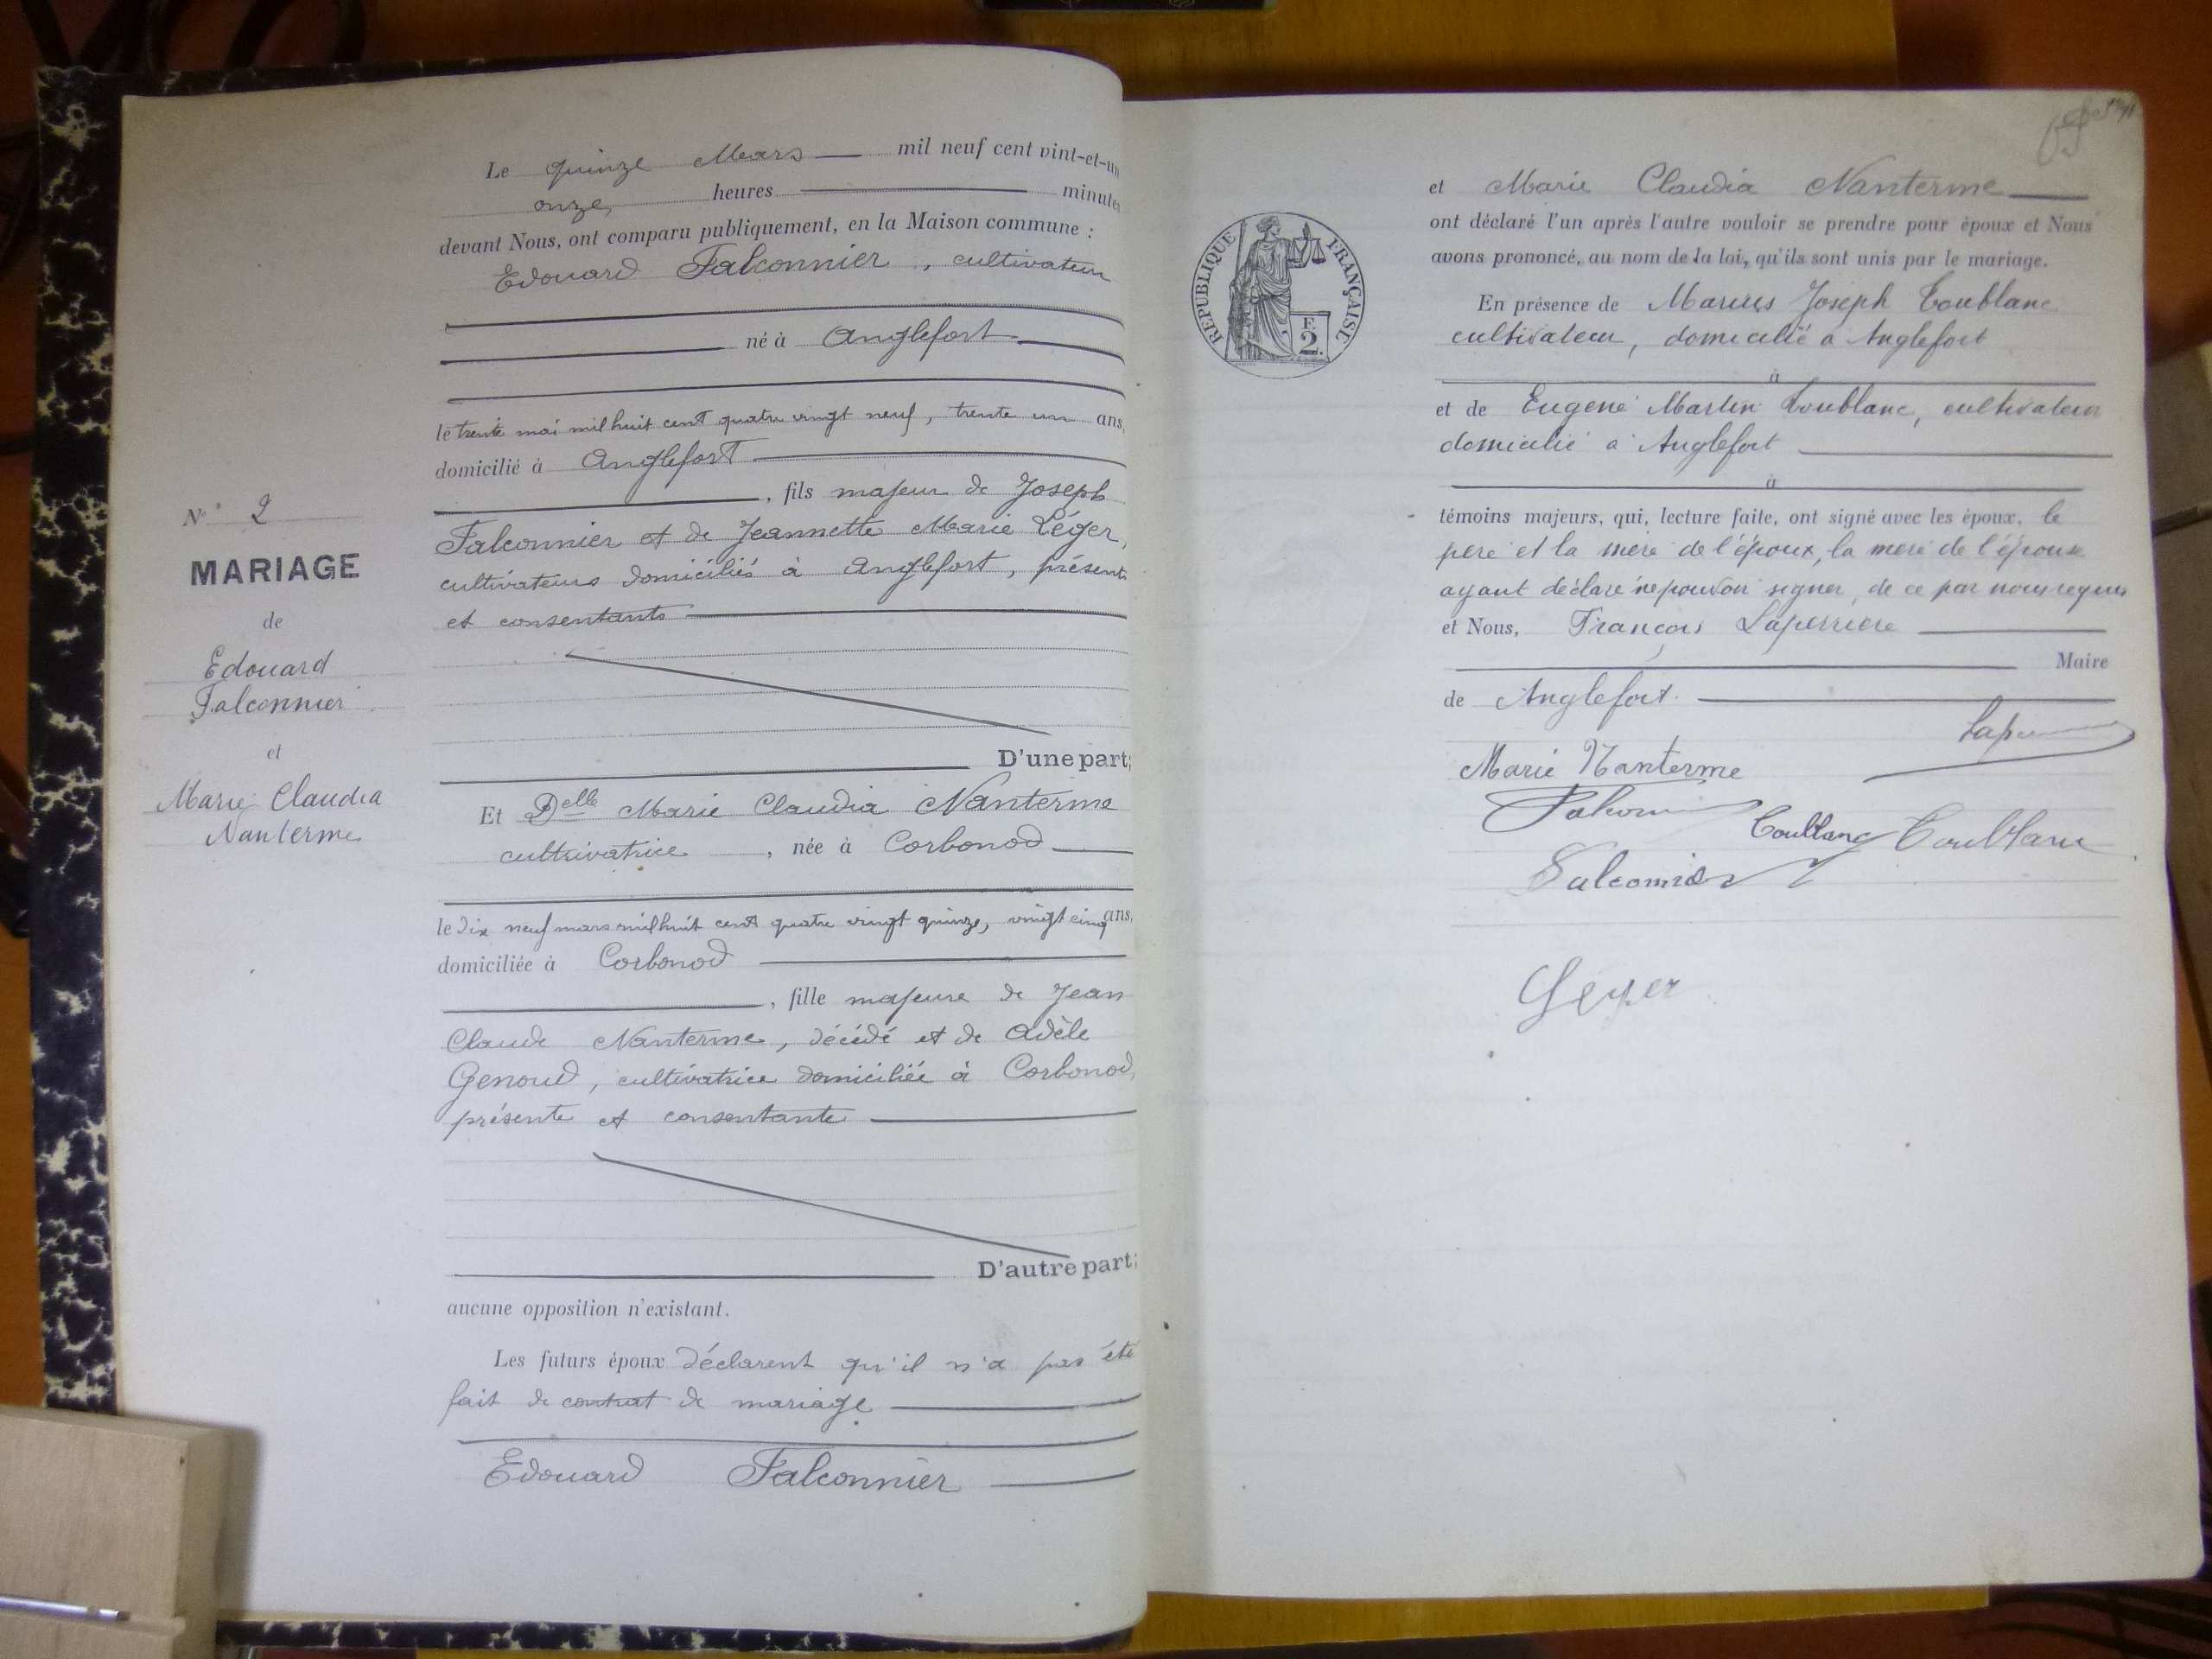 Le quinze Mars mil neuf cent vint-et-un
onze heures minutes
devant Nous, ont comparu publiquement, en la Maison commune :
Edouard Falconnier, cultivateur
né à Anglefort
le trente mai mil huit cent quatre vingt neuf, trente un ans,
domicilié à Anglefort
, fils majeur de Joseph
Falconnier et de Jeannette Marie Léger,
cultivateurs domiciliés à Anglefort, présents
et consentants
N° 2
MARIAGE
de
Edouard
Falconnier
et
Marie Claudia
Nanterme
D'une part;
Et Delle Marie Claudia Nanterme
cultivatrice, née à Corbonod
le dix neuf mars mil huit cent quatre vingt quinze, vingt cinq ans,
domiciliée à Corbonod
, fille majeure de Jean
Claude Nanterme, décédé et de Adèle
Genoud, cultivatrice domiciliée à Corbonod,
présente et consentante
D'autre part;
aucune opposition n'existant.
Les futurs époux déclarent qu'il n'a pas été
fait de contrat de mariage
Edouard Falconnier
et Marie Claudia Nanterme
ont déclaré l'un après l'autre vouloir se prendre pour époux et Nous
avons prononcé, au nom de la loi, qu'ils sont unis par le mariage.
RÉPUBLIQUE FRANÇAISE
F.
2.
En présence de Marius Joseph Toublanc
cultivateur, domicilié à Anglefort
à
et de Eugène Martin Toublanc, cultivateur
domicilié à Anglefort
à
témoins majeurs, qui, lecture faite, ont signé avec les époux, le
père et la mère de l'époux, la mère de l'épouse
ayant déclaré ne pouvoir signer, de ce par nous requis
et Nous, François Laperriere
Maire
de Anglefort.
Marie Nanterme
Toublanc Toublanc
Falconnier
Leger